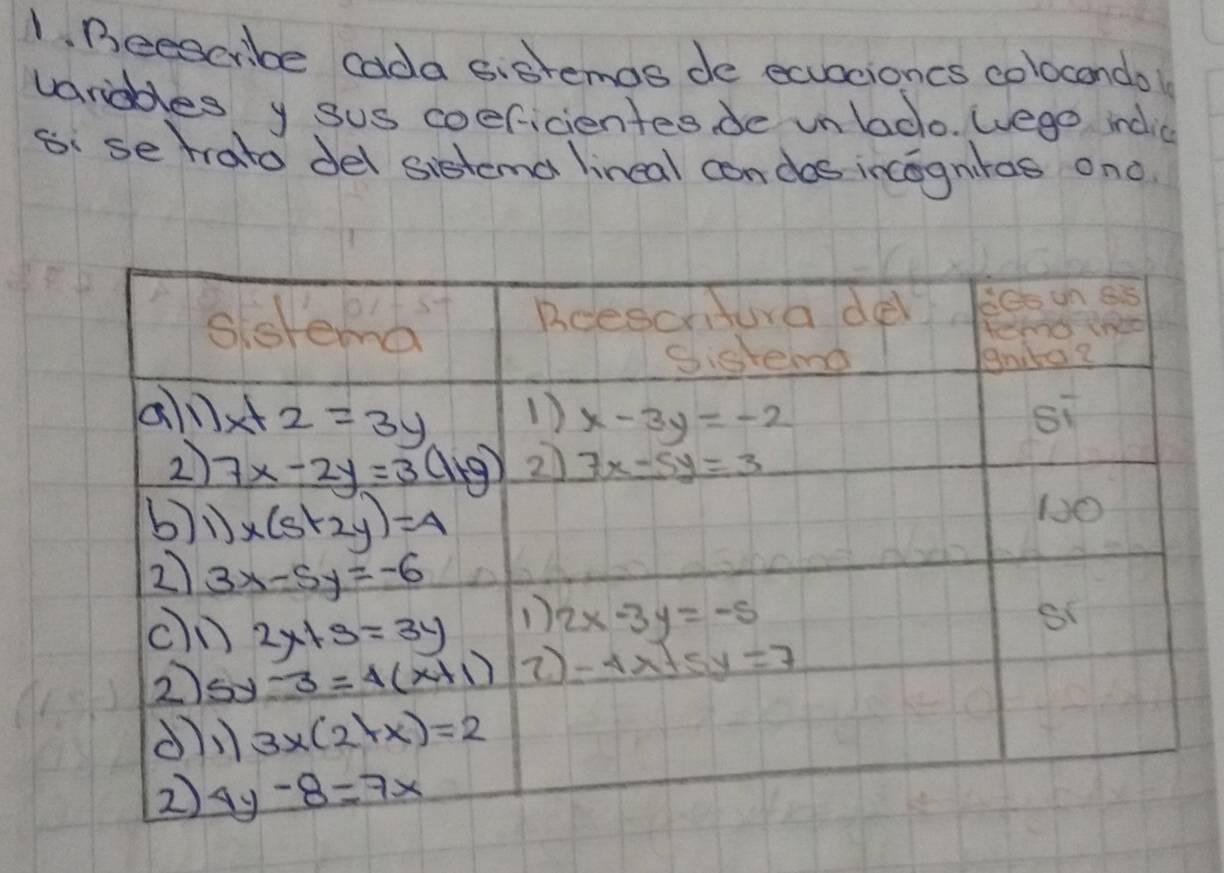 1. Reescribe cada sistemas de ecuaciones colocando
variables y sus coeficientes de un lado. Luego indic
si se trata del sistema lineal con dos incógnitas o no.
Sistema
Reescritura del
sistema
¿es un sis
tema inco
gnita?
a) 1) x + 2 = 3y
1) x - 3y = -2
Sí
2) 7x - 2y = 3(1+y)
2) 7x - 5y = 3
b) 1) x(5+2y) = 4
NO
2) 3x - 5y = -6
c) 1) 2x + 5 = 3y
1) 2x - 3y = -5
Sí
2) 5y - 3 = 4(x+1)
2) -4x + 5y = 7
d) 1) 3x(2+x) = 2
2) 4y - 8 = 7x